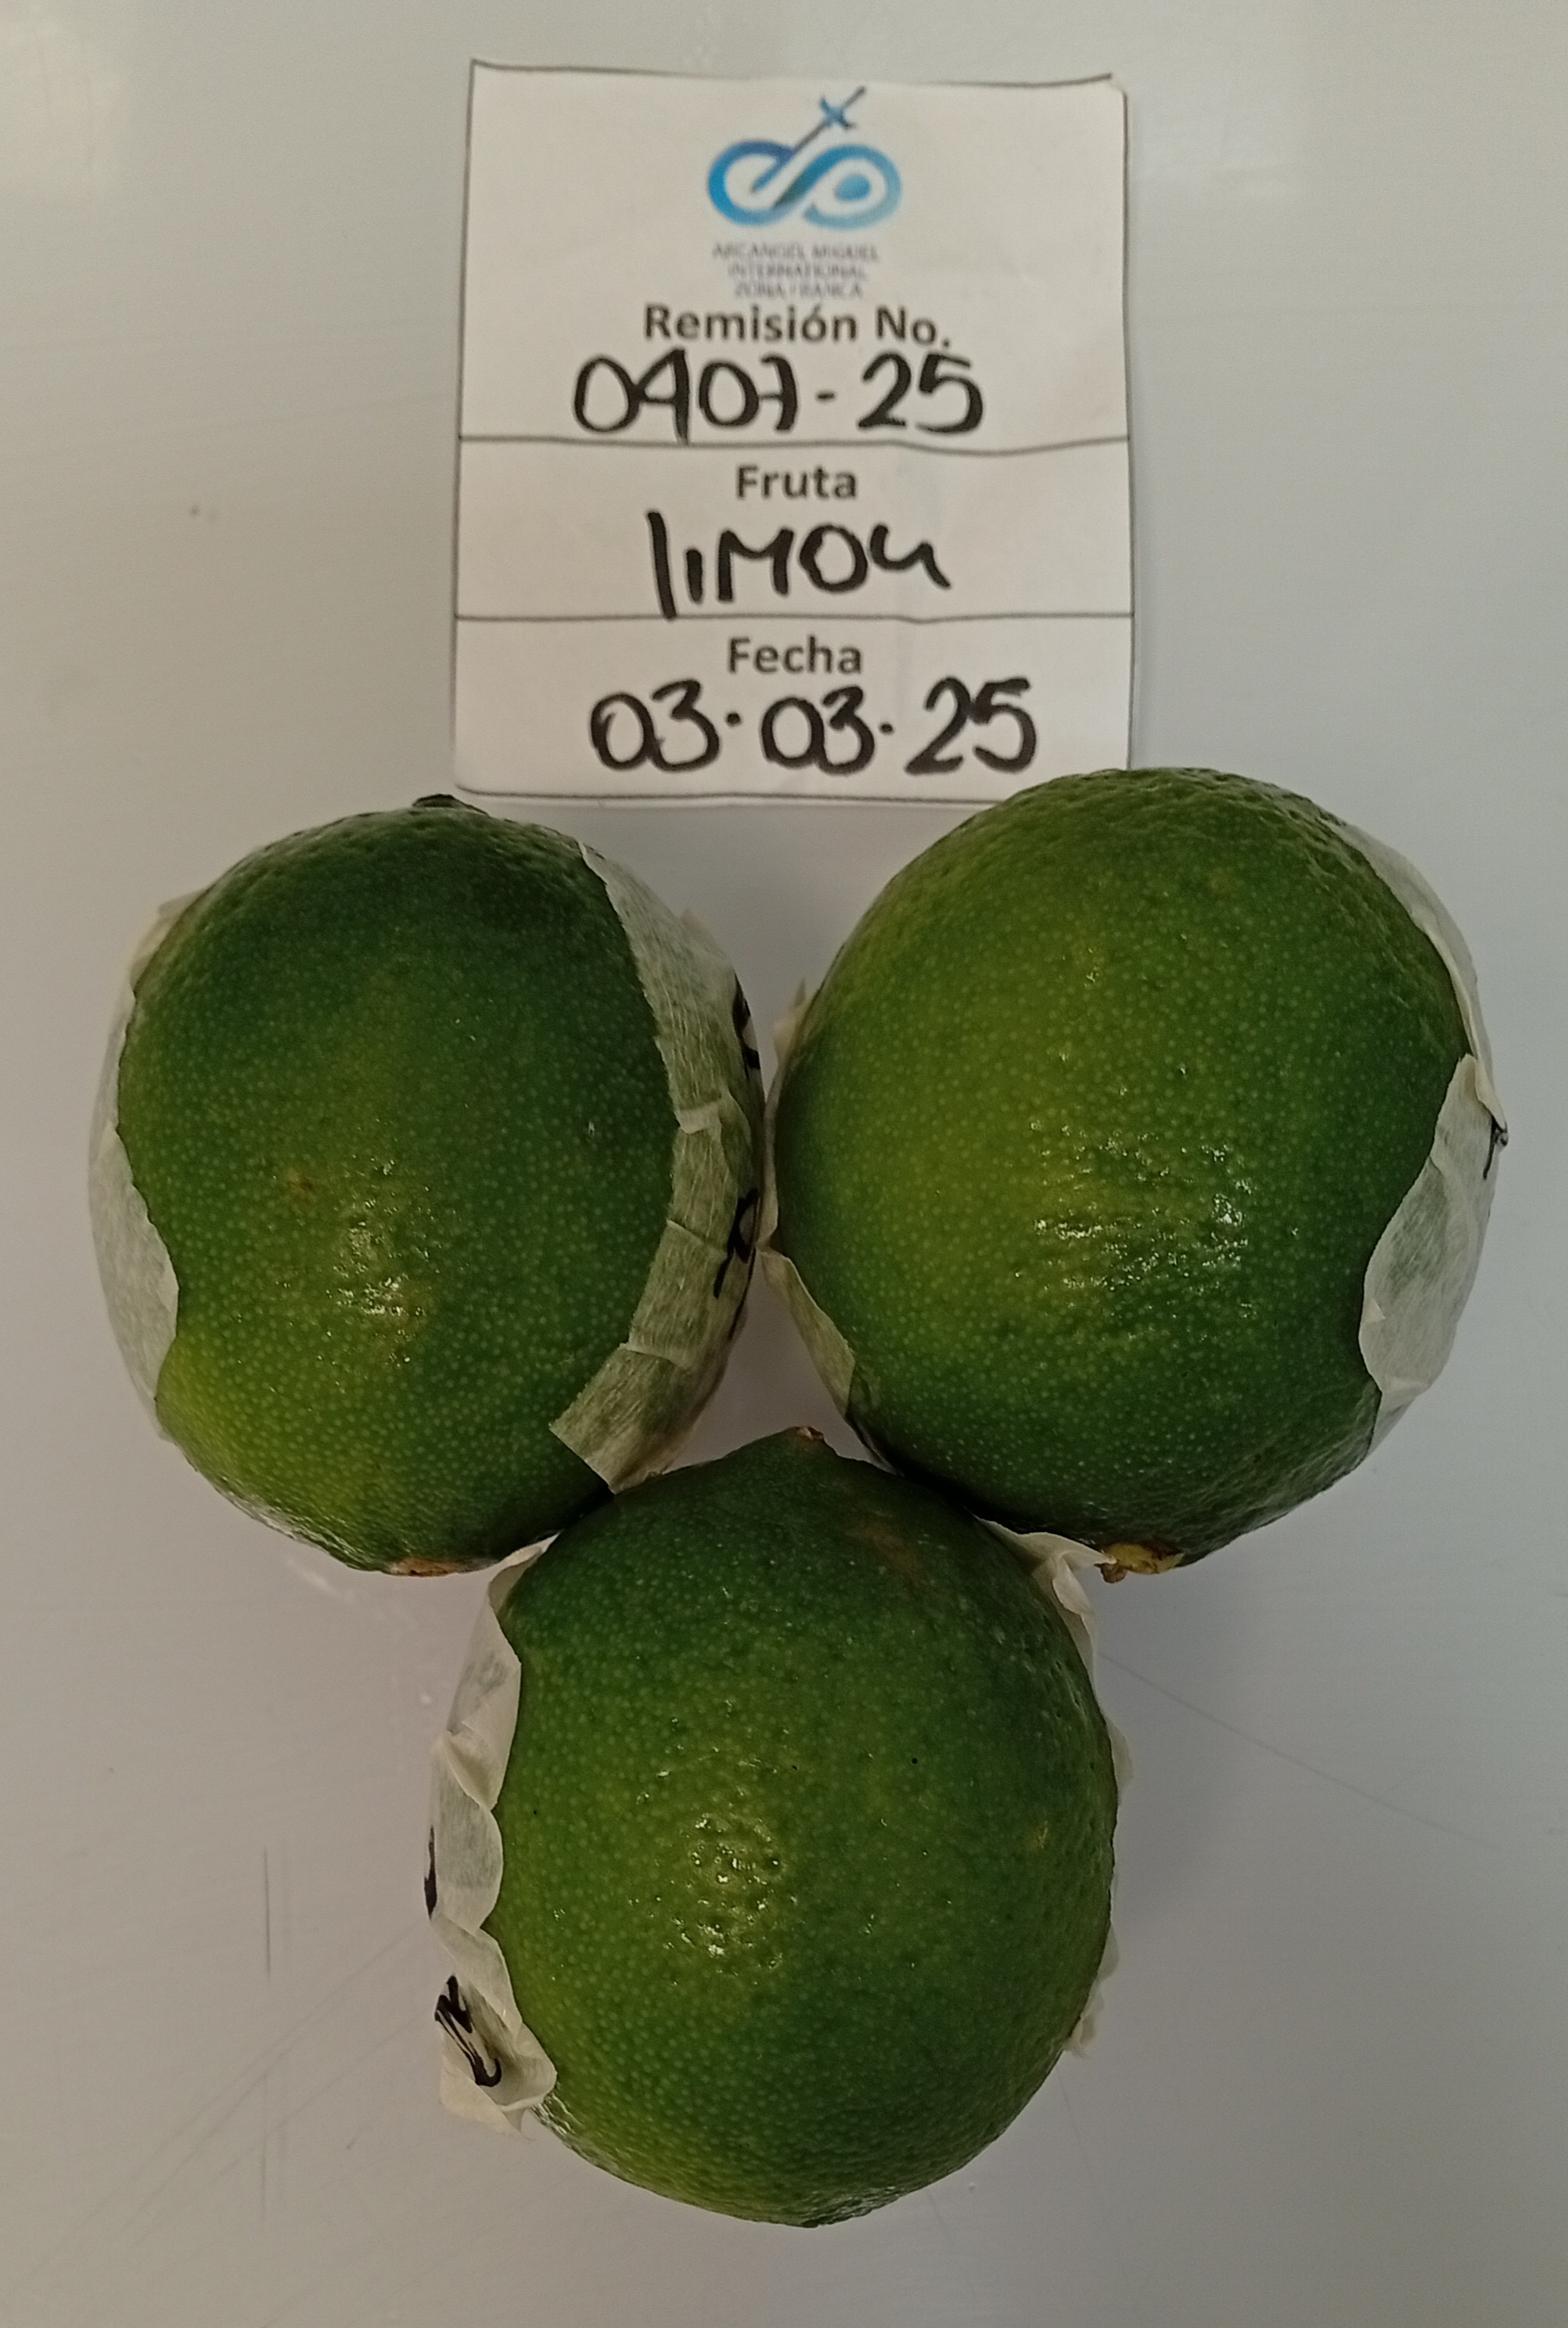 ARCANGEL MIGUEL
INTERNATIONAL
ZONA FRANCA
Remisión No.
0407-25
Fruta
limon
Fecha
03·03·25